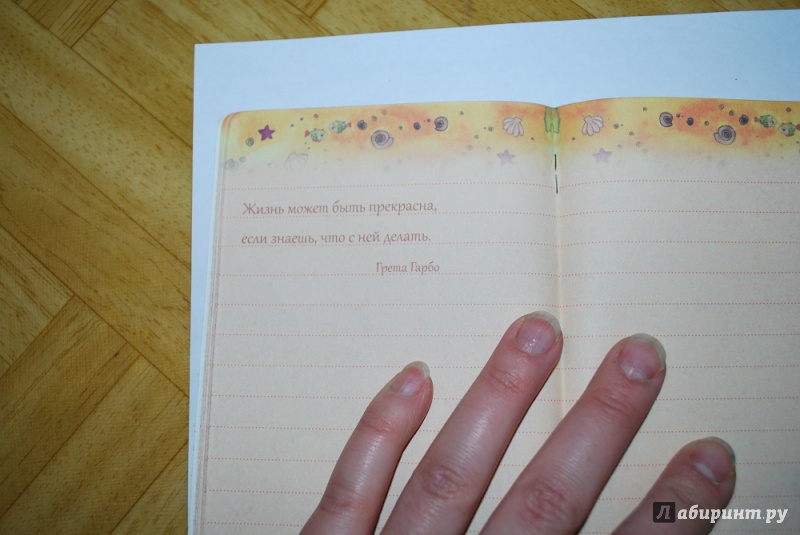 Жизнь может быть прекрасна,
если знаешь, что с ней делать.
Грета Гарбо
Лабиринт.ру